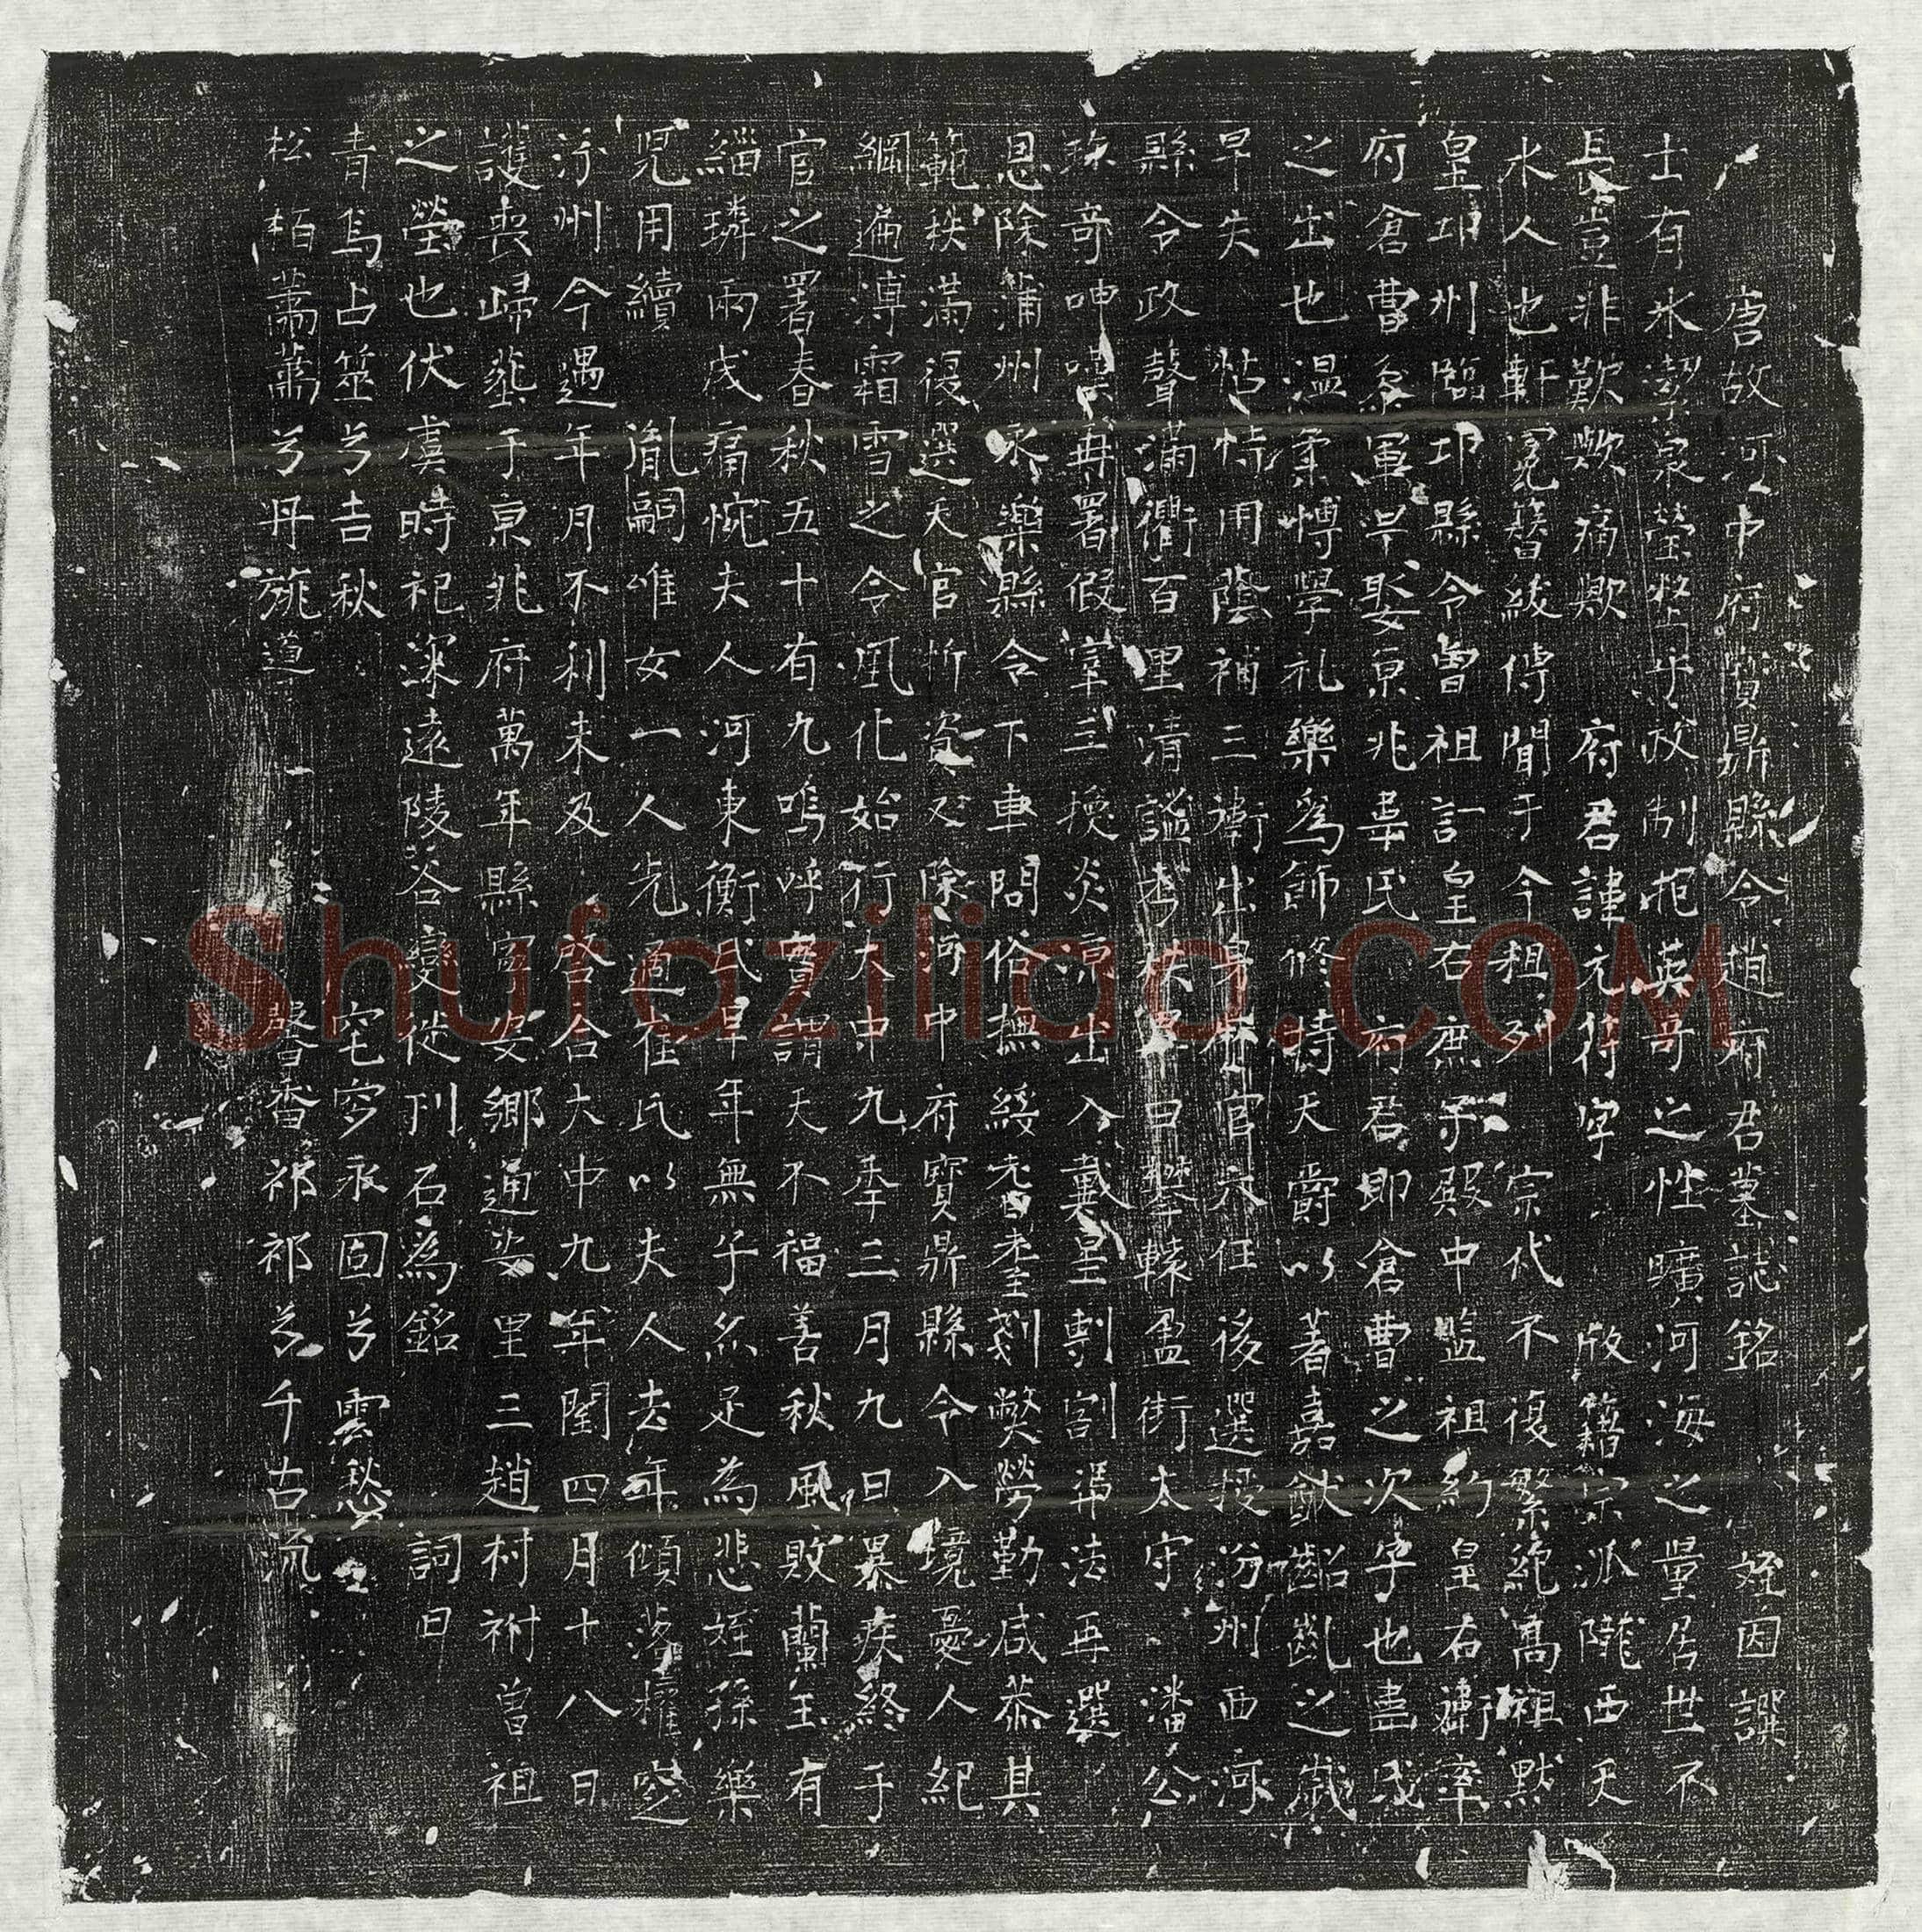 唐故河中府寶鼎縣令趙府君墓誌銘 姪因譔
士有氷潔泉瑩 乎放制 英哥之性曠河海之量居世不
長豈非歎歟痛歟 府君謹元符字 啟籍宗派隴西天
水人也軒冕簪紱傳聞于今租列 宗代不復繁紀高祖黙
皇邛州臨邛縣令曾祖 皇右庶子殿中監祖約皇右衛率
府倉曹叅軍 娶京兆韋氏 府君即倉曹之次字也盡
之出也溫 博學礼樂爲師修持天爵以著嘉猷齠齓之歲
早失 怙恃用蔭補三衛出身 官 任後選授汾州西河
縣令政聲滿衢百里清謐 秩 日攀轅盈街太守 潘公
珠奇呻嘆再署假宰三換炎涼出入戴星剸割馮法再選
恩除蒲州永樂縣令下車問俗撫綏耆 剗弊勞勤咸恭其
範秩滿復選天官忻 又除河中府寶鼎縣令入境憂人紀
綱遍溥霜雪之令風化始行大中九年三月九日暴疾終于
官之署春秋五十有九嗚呼 謂天不福善秋風敗蘭玉有
緇璘兩戌痛惋夫人河東衡氏早年無子 足為悲姪孫樂
児用續 胤嗣唯女一人先適崔氏以夫人去年傾落權窆
汾州今遇年月不利未及 啓合大中九年閏四月十八日
護喪歸葬于京兆府萬年縣寧安鄉通 里三趙村祔曾祖
之塋也伏虞時祀深遠陵谷變從刋石爲銘 詞曰
青烏占筮兮吉秋 宅穸永固兮雲愁
松栢蕭蕭兮丹旐道 馨香祁祁兮千古流
Shufaziliao.COM